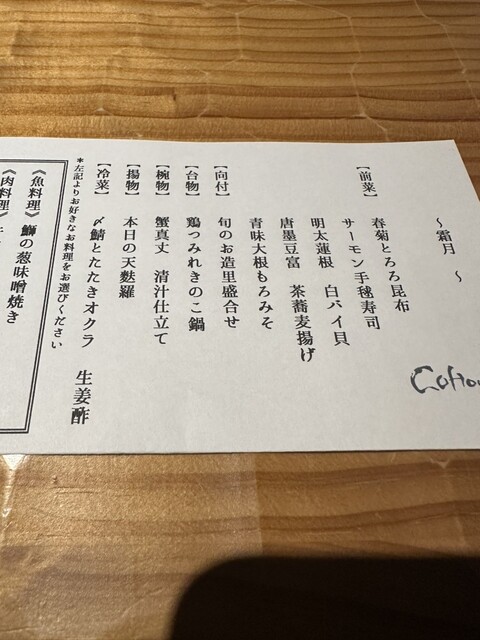 ～霜月　～
【前菜】　春菊とろろ昆布
サーモン手毬寿司
明太蓮根　白バイ貝
唐墨豆富　茶蕎麦揚げ
青味大根もろみそ
【向付】　旬のお造里盛合せ
【台物】　鶏つみれきのこ鍋
【椀物】　蟹真丈　清汁仕立て
【揚物】　本日の天麩羅
【冷菜】　〆鯖とたたきオクラ　生姜酢
＊左記よりお好きなお料理をお選びください
《魚料理》　鰤の葱味噌焼き
《肉料理》